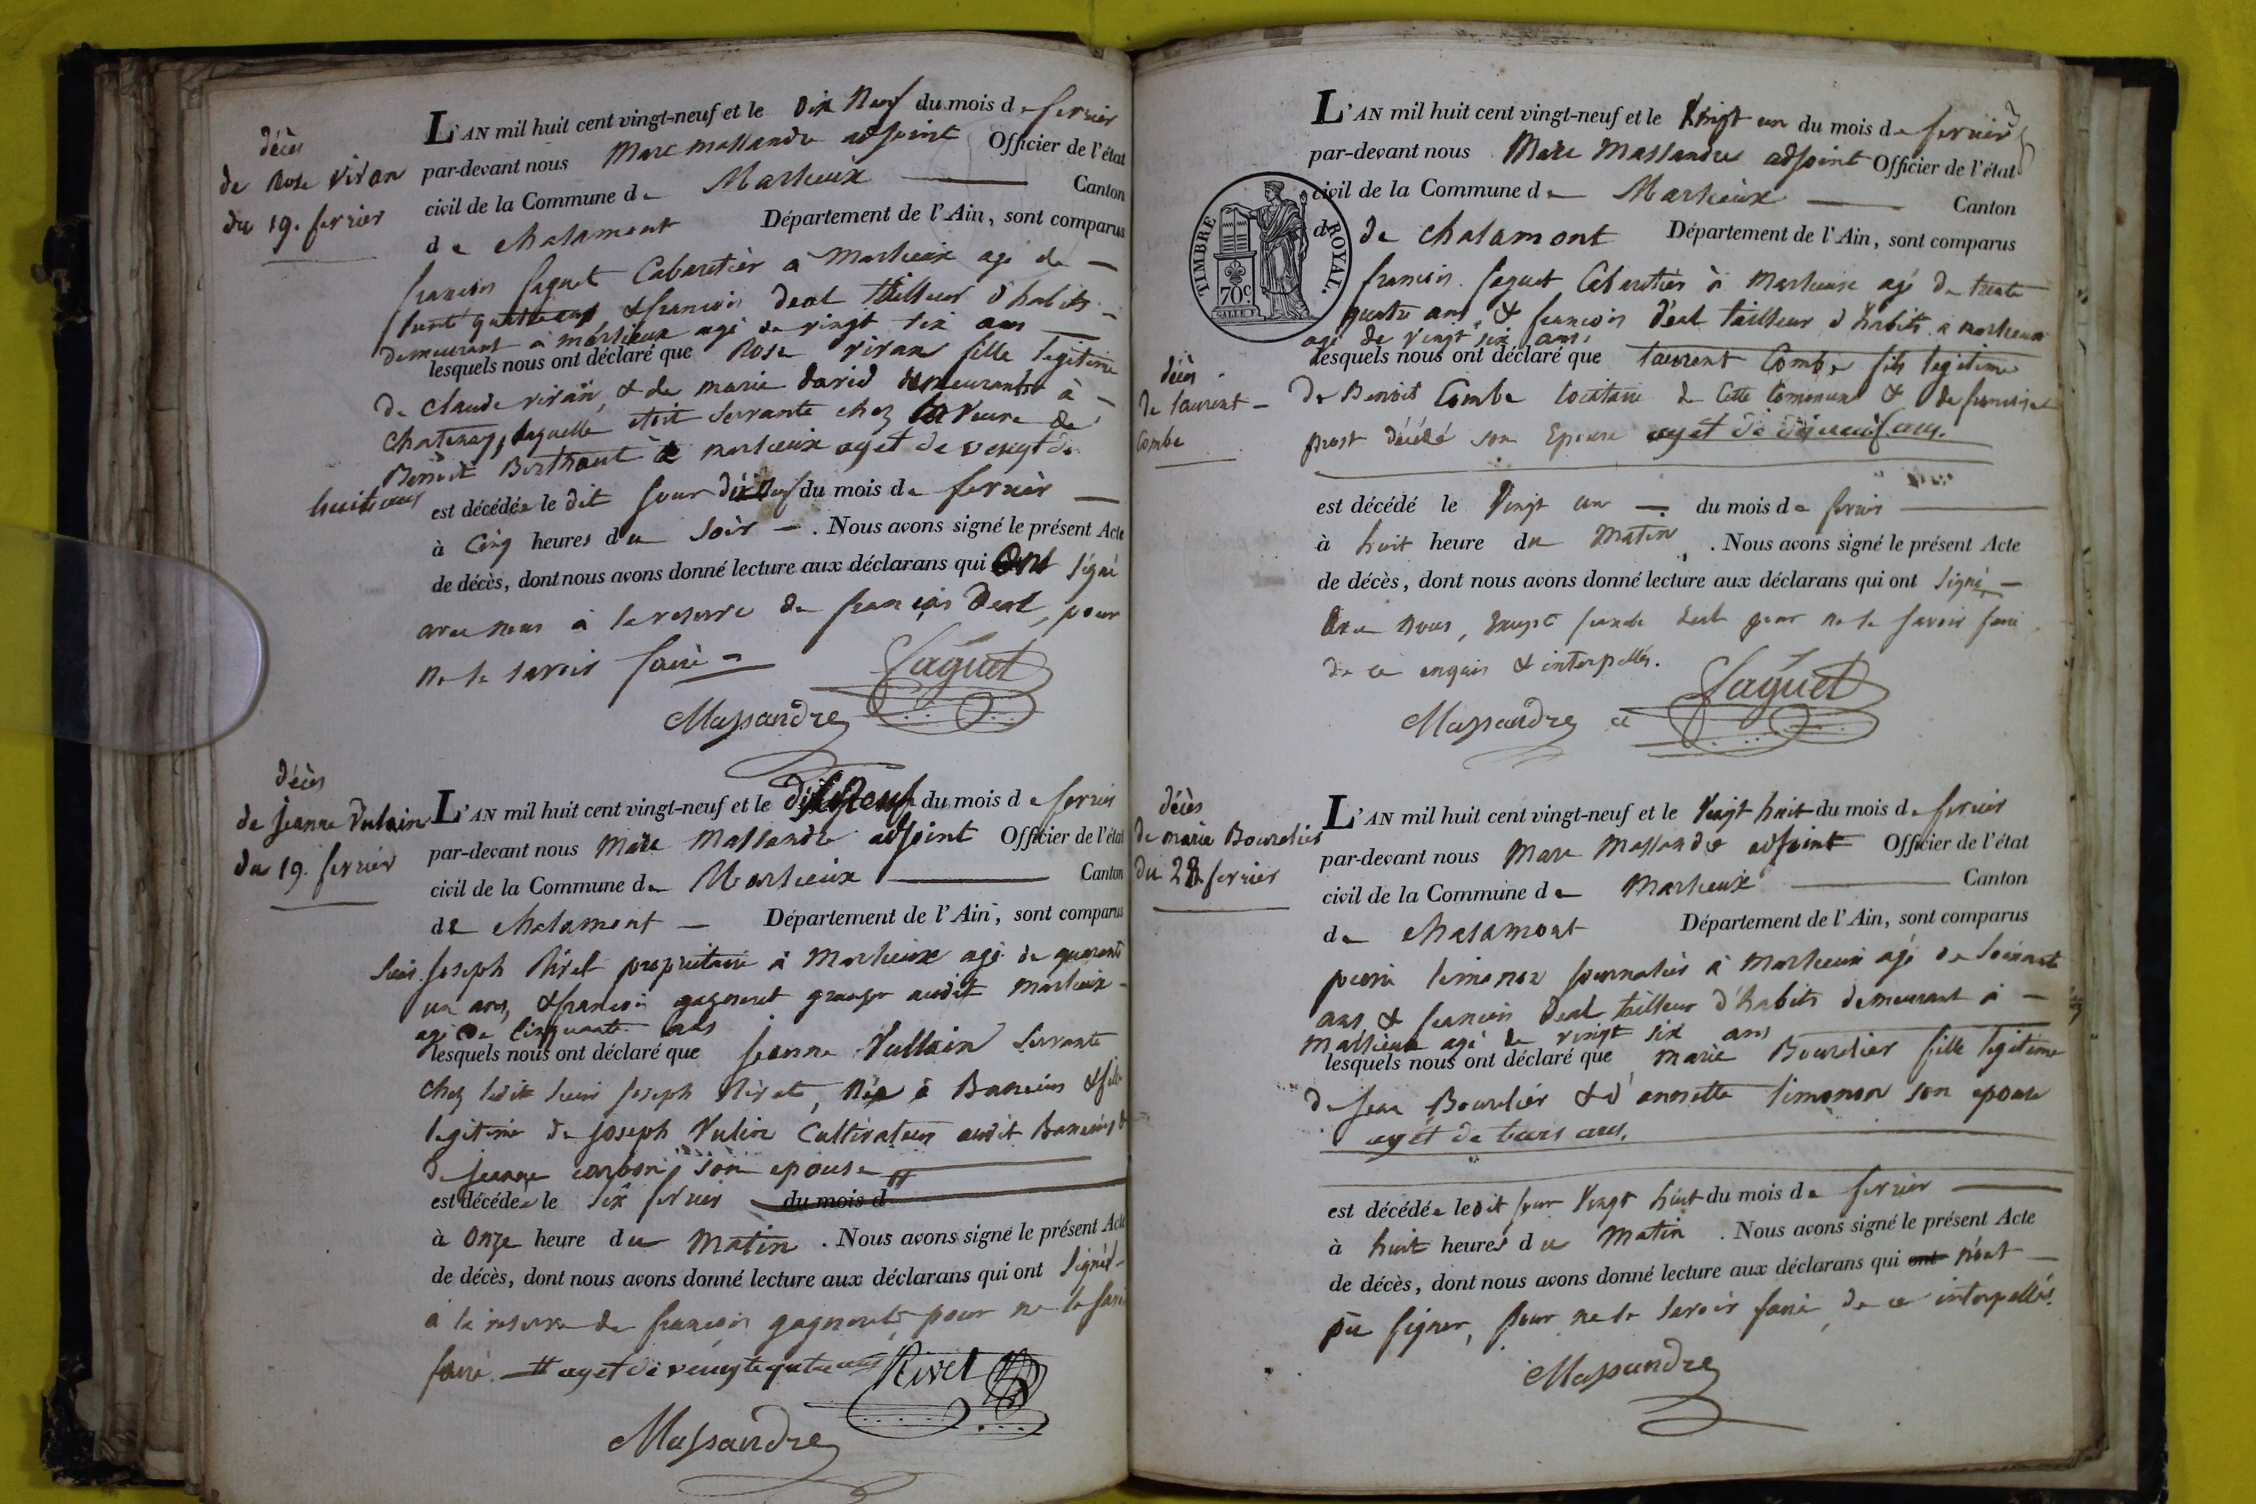 décès
de Rose vivan
du 19. fevrier
L'AN mil huit cent vingt-neuf et le dix neuf du mois de fevrier
par-devant nous Marc Massandre adjoint Officier de l'état
civil de la Commune de Marlieux Canton
de chalamont Département de l'Ain, sont comparus
francois faguet Cabaretier à Marlieux agé de
trente quatre ans, & francois deal tailleur d'habits
demeurant à marlieux agé de vingt six ans
lesquels nous ont déclaré que Rose vivan fille legitime
de claude vivan, & de marie david demeurant à
chatenay, laquelle etoit servante chez la veuve de
Benoit Berthaut à marlieux aget de vengt
huit ans
est décédée le dit jour dix neuf du mois de fevrier
à cinq heures du soir. Nous avons signé le présent Acte
de décès, dont nous avons donné lecture aux déclarans qui ont signé
avec nous à la reserve de francois deal, pour
ne le savoir faire
faguet
Massandre
décès
de jeanne Vulain
du 19. fevrier
L'AN mil huit cent vingt-neuf et le dix neuf du mois de fevrier
par-devant nous Marc Massandre adjoint Officier de l'état
civil de la Commune de Marlieux Canton
de chalamont Département de l'Ain, sont comparus
Sieur joseph Rivet proprietaire à Marlieux agé de quarante
un ans, & francois gagneret granger audit marlieux
agé de cinquante ans
lesquels nous ont déclaré que jeanne Vullain servante
chez ledit sieur joseph Rivet, née à Baneins & fille
legitime de joseph Vulin Cultivateur audit Baneins &
de jeanne son epouse #
est décédée le six fevrier du mois d
à onze heure du Matin. Nous avons signé le présent Acte
de décès, dont nous avons donné lecture aux déclarans qui ont signés
à la reserve de francois gagneret pour ne le savoir
faire. # aget de vengt quatre ans
Rivet
Massandre
TIMBRE ROYAL.
70c.
L'AN mil huit cent vingt-neuf et le Vingt un du mois de fevrier
par-devant nous Marc Massandre adjoint Officier de l'état
civil de la Commune de Marlieux Canton
d de chalamont Département de l'Ain, sont comparus
francois faguet Cabaretier à Marlieux agé de trente
quatre ans & francois deal tailleur d'habits à marlieux
agé de vingt six ans
décès
de laurent
Combe
lesquels nous ont déclaré que laurent Combe fils legitime
de Benoit Combe locataire de cette Commune & de francoise
prost décédé son Epouse aget de dijneuf ans.
est décédé le Vingt un du mois de fevrier
à huit heure du Matin. Nous avons signé le présent Acte
de décès, dont nous avons donné lecture aux déclarans qui ont signé,
avec nous, excepté deal pour ne le savoir faire
de ce enquis & interpellés.
faguet
Massandre
décès
de marie Bourelier
du 28 fevrier
L'AN mil huit cent vingt-neuf et le Vingt huit du mois de fevrier
par-devant nous Marc Massandre adjoint Officier de l'état
civil de la Commune de Marlieux Canton
de chalamont Département de l'Ain, sont comparus
pierre limonon journalier à Marlieux agé de soixante
ans & francois deal tailleur d'habits demeurant à
Marlieux agé de vingt six ans
lesquels nous ont déclaré que marie Bourelier fille legitime
de jean Bourelier & d'annette limonon son epouse
aget de trois ans.
est décédée ledit jour Vingt huit du mois de fevrier
à huit heures du Matin. Nous avons signé le présent Acte
de décès, dont nous avons donné lecture aux déclarans qui ont n'ont
pu signer, pour ne le savoir faire, de ce interpellés.
Massandre